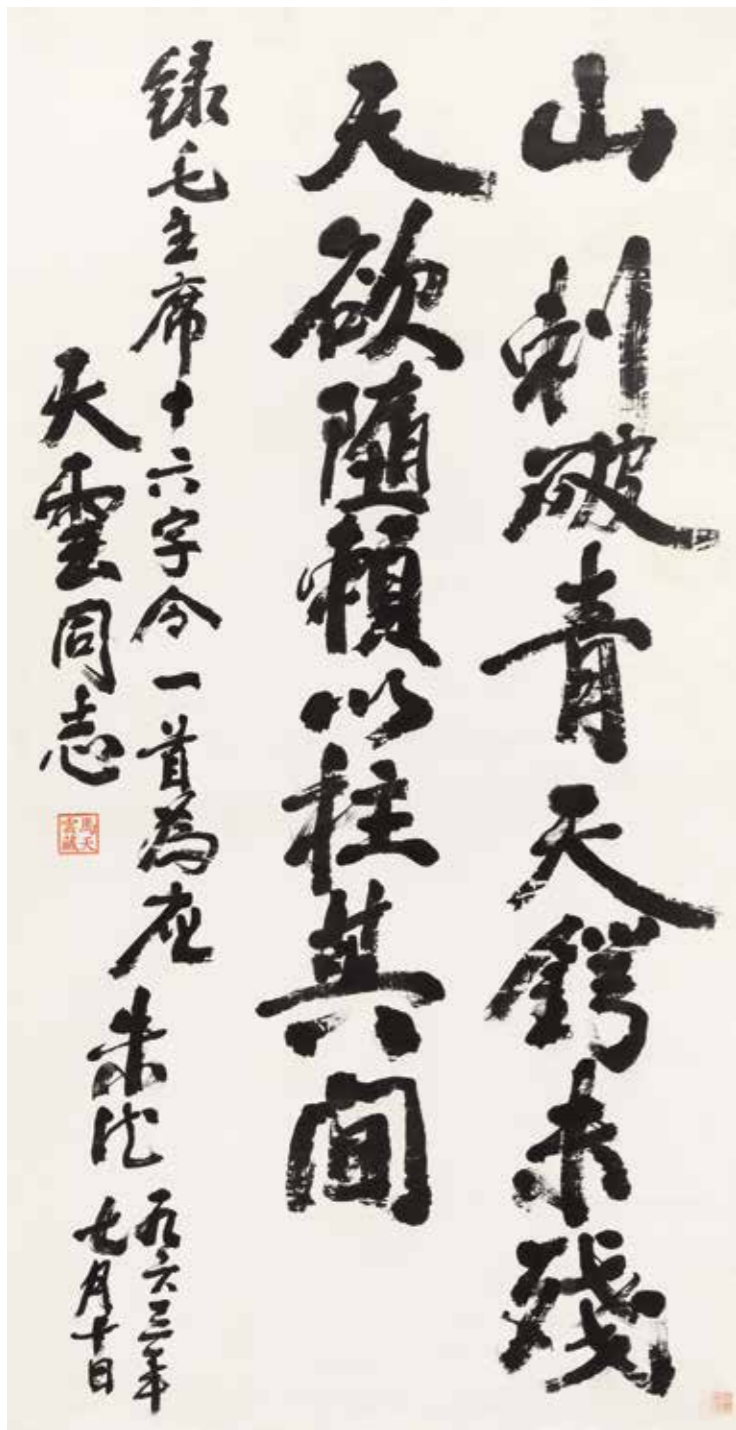 山刺破青天鍔未殘
天欲随賴以柱其間
録毛主席十六字令一首為应
天雲同志
朱德
一九六三年
七月十日
馬天雲藏